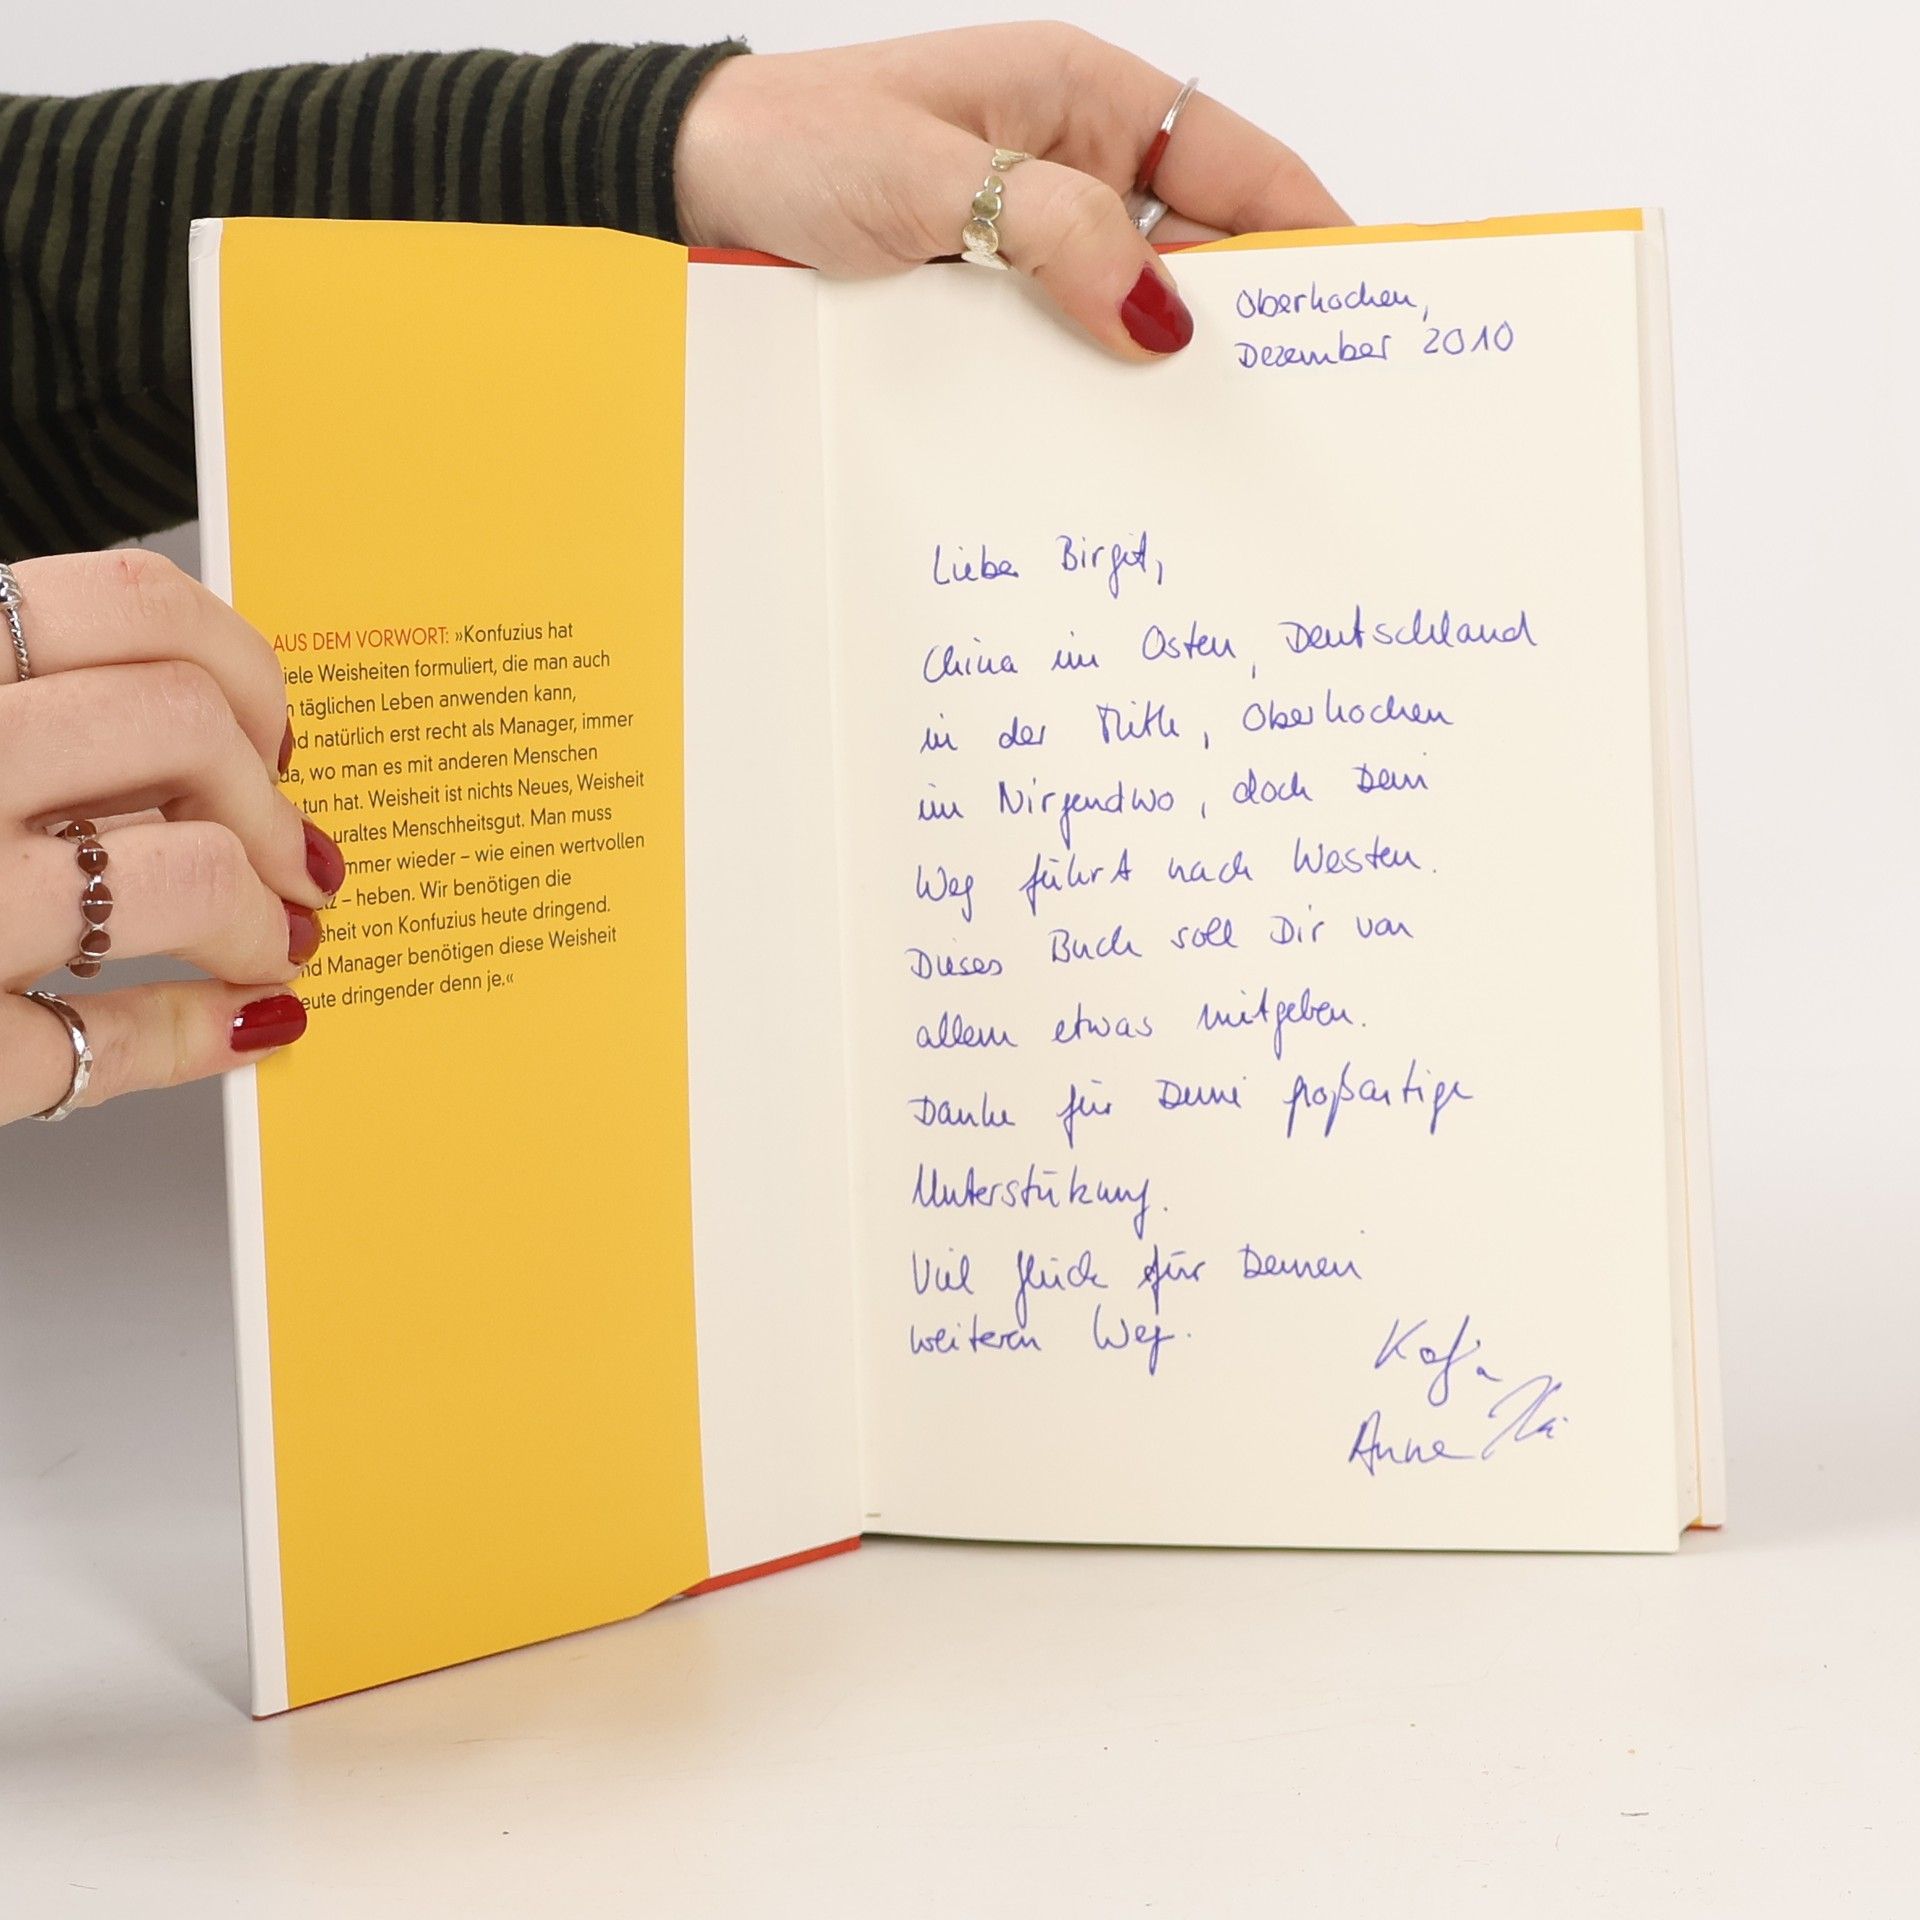 AUS DEM VORWORT: »Konfuzius hat
iele Weisheiten formuliert, die man auch
n täglichen Leben anwenden kann,
nd natürlich erst recht als Manager, immer
da, wo man es mit anderen Menschen
tun hat. Weisheit ist nichts Neues, Weisheit
uraltes Menschheitsgut. Man muss
mmer wieder – wie einen wertvollen
tz – heben. Wir benötigen die
sheit von Konfuzius heute dringend.
nd Manager benötigen diese Weisheit
eute dringender denn je.«
Oberkochen,
Dezember 2010
Liebe Birgit,
China im Osten, Deutschland
in der Mitte, Oberkochen
im Nirgendwo, doch Dein
Weg führt nach Westen.
Dieses Buch soll Dir von
allem etwas mitgeben.
Danke für Deine großartige
Unterstükung.
Viel Glück für Deinen
weiteren Weg.
Katja
Anne